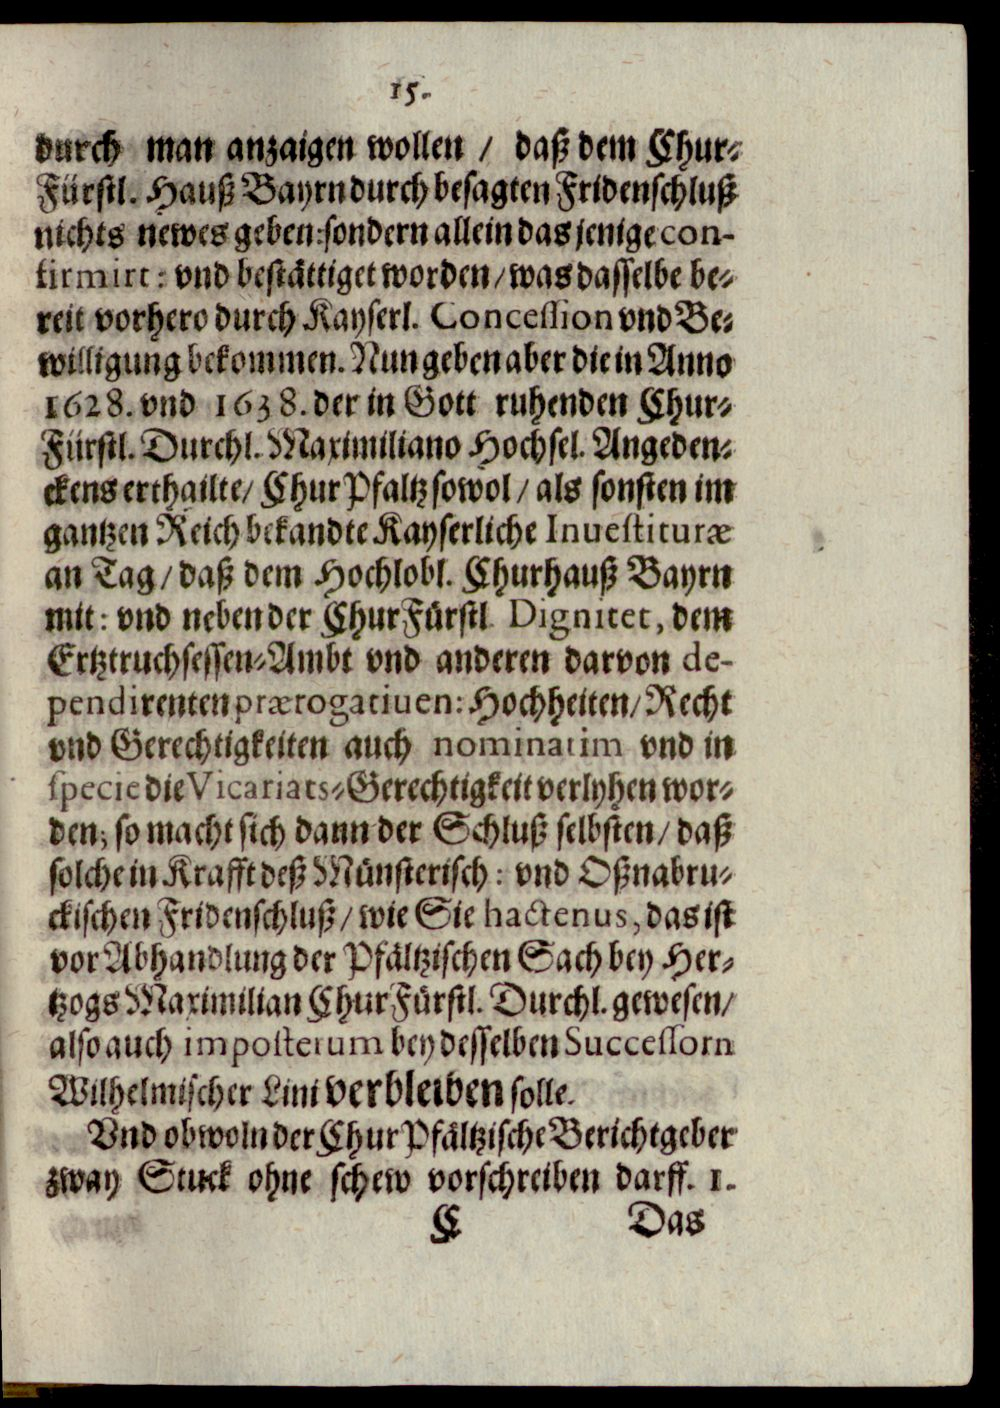 15.
durch man anzaigen wollen / daß dem Chur-
Fürstl. Hauß Bayrn durch besagten Fridenschluß
nichts newes geben: sondern allein das jenige con-
firmirt: vnd bestättiget worden / was dasselbe be-
reit vorhero durch Kayserl. Concession vnd Be-
willigung bekommen. Nun geben aber die in Anno
1628. vnd 1638. der in Gott ruhenden Chur-
Fürstl. Durchl. Maximiliano Hochsel. Angeden-
ckens erthailte / Chur Pfaltz sowol / als sonsten im
gantzen Reich bekandte Kayserliche Inuestituræ
an Tag / daß dem Hochlobl. Churhauß Bayrn
mit: vnd neben der ChurFürstl. Dignitet, dem
Ertztruchsessen-Ambt vnd anderen darvon de-
pendirenten prærogatiuen: Hochheiten / Recht
vnd Gerechtigkeiten auch nominatim vnd in
specie die Vicariats-Gerechtigkeit verlyhen wor-
den; so macht sich dann der Schluß selbsten / daß
solche in Krafft deß Münsterisch: vnd Oßnabru-
ckischen Fridenschluß / wie Sie hactenus, das ist
vor Abhandlung der Pfältzischen Sach bey Her-
tzogs Maximilian ChurFürstl. Durchl. gewesen /
also auch imposterum bey desselben Successorn
Wilhelmischer Lini verbleiben solle.
Vnd obwoln der ChurPfältzische Berichtgeber
zway Stuck ohne schew vorschreiben darff. 1.
C Das